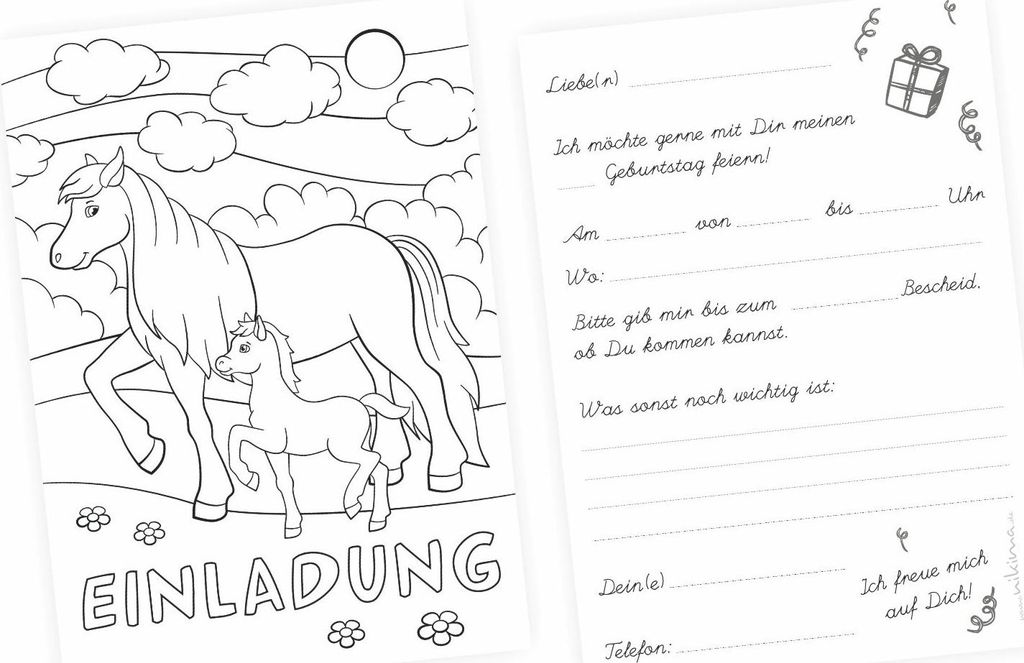 EINLADUNG
Liebe(r)
Ich möchte gerne mit Dir meinen
Geburtstag feiern!
Am von bis Uhr
Wo:
Bitte gib mir bis zum Bescheid,
ob Du kommen kannst.
Was sonst noch wichtig ist:
Dein(e)
Ich freue mich
auf Dich!
Telefon:
www.nikima.de